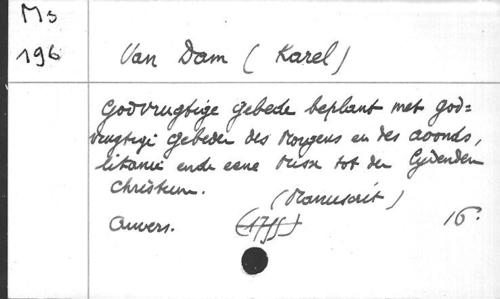 Ms
196
Van Dam (Karel)
Godvrugtige gebede beplant met god=
vrugtigi gebeden des Morgens en des avonds,
litanie ende eene Misse tot den Lijdenden
Christum.
(Manuscrit)
Anvers. 16°